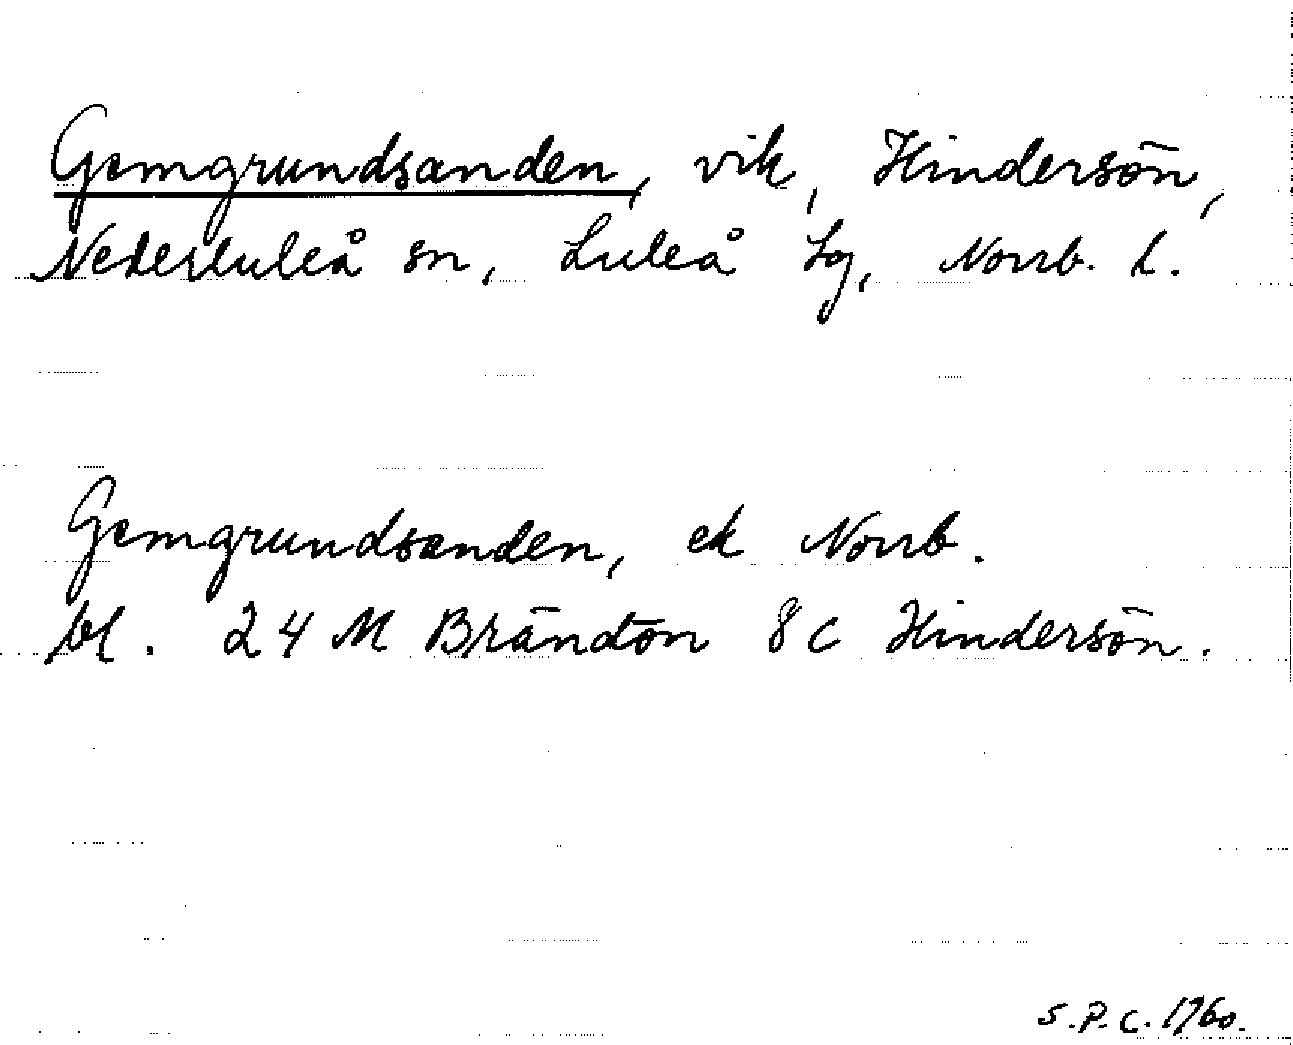 Gemgrundsanden, vik, Hindersön,
Nederluleå sn, Luleå tg, Norrb. l.
Gemgrundsanden, ek Norrb.
bl. 24 M Brändön 8 c Hindersön.
S.P.C. 1960.